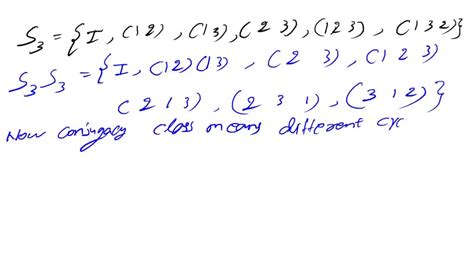 S₃ = {I, (1 2), (1 3), (2 3), (1 2 3), (1 3 2)}
S₃ S₃ = {I, (1 2) (1 3), (2 3), (1 2 3)
(2 1 3), (2 3 1), (3 1 2)}
Now conjugacy class means different cyc